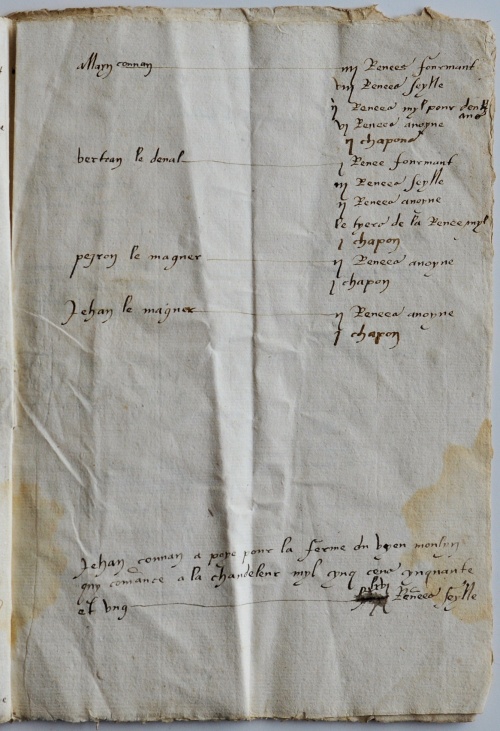 allayn connan iiij Renees fourmant
viij Renees seylle
ij Renees myl pour deulx ans
vj Renees avoyne
ij chapons
bertran le denal j Renee fourmant
iij Renees seylle
ij Renees avoyne
le tyers de la Renee myl
j chapon
peyron le magner ij Renees avoyne
j chapon
Jehan le magner ij Renees avoyne
j chapon
Jehan connan a poyé pour la ferme du
quy comance a la chandeleur myl cynq cens cynquante
et ung Renees seylle